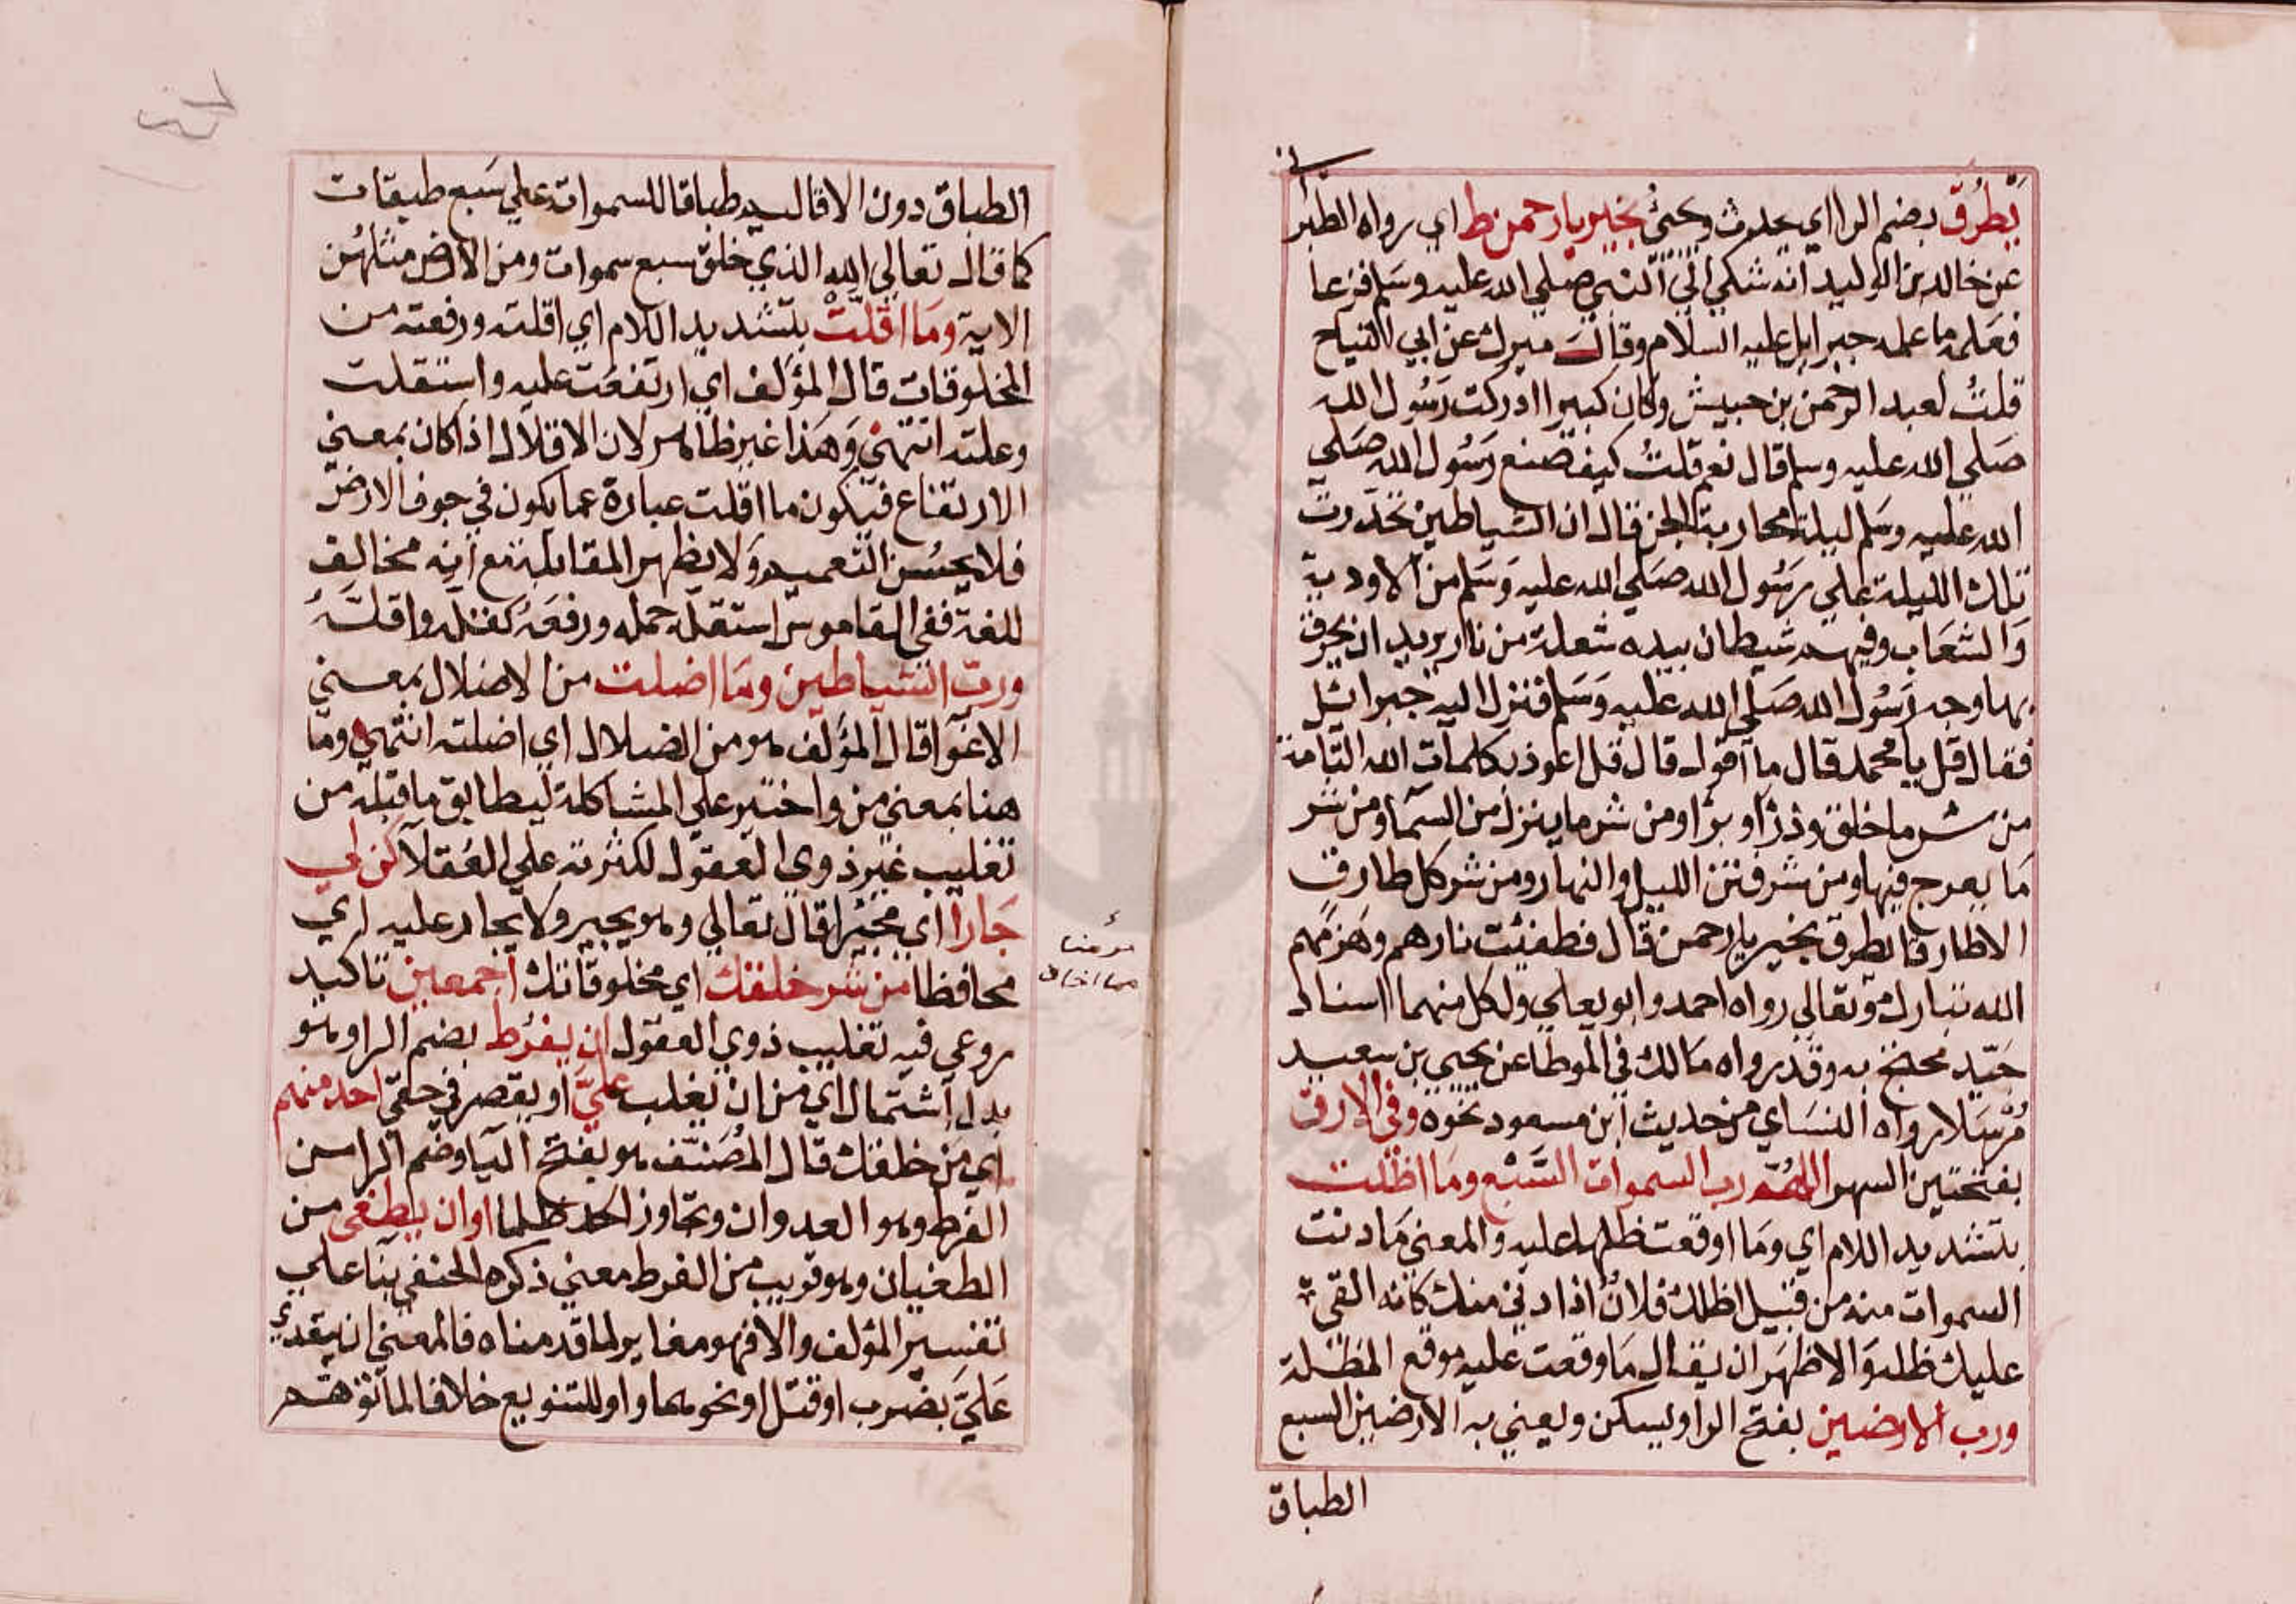 يَطرُق بضم الرا اي يحدث ويجئ بخير يا رحمن ط اي رواه الطبراني
عن خالد بن الوليد انه شكي الي النبي صلي الله عليه وسلم فزعا
فعلمه ما علمه جبرايل عليه السلام وقال ميرك عن ابي التياح
قلتُ لعبد الرحمن بن حبيش وكان كبيرا ادركت رسُول الله
صَلي الله عليه وسلم قال نعم قلتُ كيف صنع رسُول الله صَلي
الله عليه وسَلم ليلة محاربة الجن قال ان الشياطين تحدّرت
تلك الليلة علي رسُول الله صَلي الله عليه وَسَلم من الاودية
وَالشعَاب وفيهم شيطان بيده شعلة من نار يريد ان يحرق
بها وجه رَسُول الله صَلي الله عليه وَسَلم فنزل اليه جبرائيل
فقال قل يا محمد قال ما اقول قال قل اعوذ بكلمات الله التآمة
من شر ما خلق وذرا وبرا ومن شر ما ينزل من السمآ ومن شر
مَا يعرج فيها ومن شر فتن الليل والنهار ومن شر كل طارق
الا طارقا يطرق بخير يا رحمن قال فطفئت نارهم وهَزمهم
الله تبارك وتعالي رواه احمد وابو يعلي ولكل منهما اسناد
جَيّد محتج به وقد رواه مَالك في الموطا عن يحيي بن سعيد
مُرسَلا رواه النسَاي من حديث ابن مسعود نحوه وفي الارق
بفتحتين السهر اللهُم رب السموات السّبْع ومَا اظلت
بتشديد اللام اي ومَا اوقعت ظلها عليه والمعني مَا دنت
السموات منه من قبيل اظلك فلانٌ اذا دني منك كانه القي
عليك ظله وَالاظهَر ان يقال مَا وقعت عليه موقع المظلة
ورب الارضين بفتح الرا ويسكن ويعني به الارضين السبع
الطباق
الطباق دون الاقاليم طباقا للسموات علي سَبع طبقات
كما قال تعالي الله الذي خلق سبع سموات ومن الارض مثلهُن
الاية ومَا اقلتْ بتشديد اللام اي اقلته ورفعته من
المخلوقات قال المؤلف اي ارتفعَت عليه واستقلت
وعلته انتهيٰ وَهَذا غير ظاهر لان الاقلال اذا كان بمعني
الارتفاع فيكون ما اقلت عبارة عما يكون في جوف الارض
فلا يحسُن التعميم وَلا يظهر المقابلة مع انه مخالف
للغة ففي القاموس استقله حمله ورفعَهُ كقله واقلّهُ
ورب الشياطين ومَا اضلت من الاضلال بمعني
الاغوآ قال المؤلف هو من الضلال اي اضلته انتهي وما
هنا بمعني من واختير علي المشاكلة ليطابق ما قبله من
تغليب غير ذوي العقول لكثرته علي العُقلآ كن لي
جَارا اي مجيرا قال تعالي وهو يجير ولا يجار عليه اي
محافظا من شر خلقك اي مخلوقاتك اجمعين تاكيد
روعي فيه تغليب ذوي العقول ان يفرُط بضم الرا وهو
بدل اشتمال اي من ان يغلب عليّ او يقصر في حقي احد منهم
اي من خلقك قال المُصَنّف هو بفتح اليآ وضم الرا من
الفرط وهو العدوان وتجاوز الحد ظلما او ان يطغى من
الطغيان وهو قريب من الفرط معني ذكره الحنفي بنا علي
تفسير المؤلف والا فهو مغاير لما قدمناه فالمعني ان يتعدي
عَليَّ بضرب او قتل او نحوهما واو للتنويع خلافا لما توهم